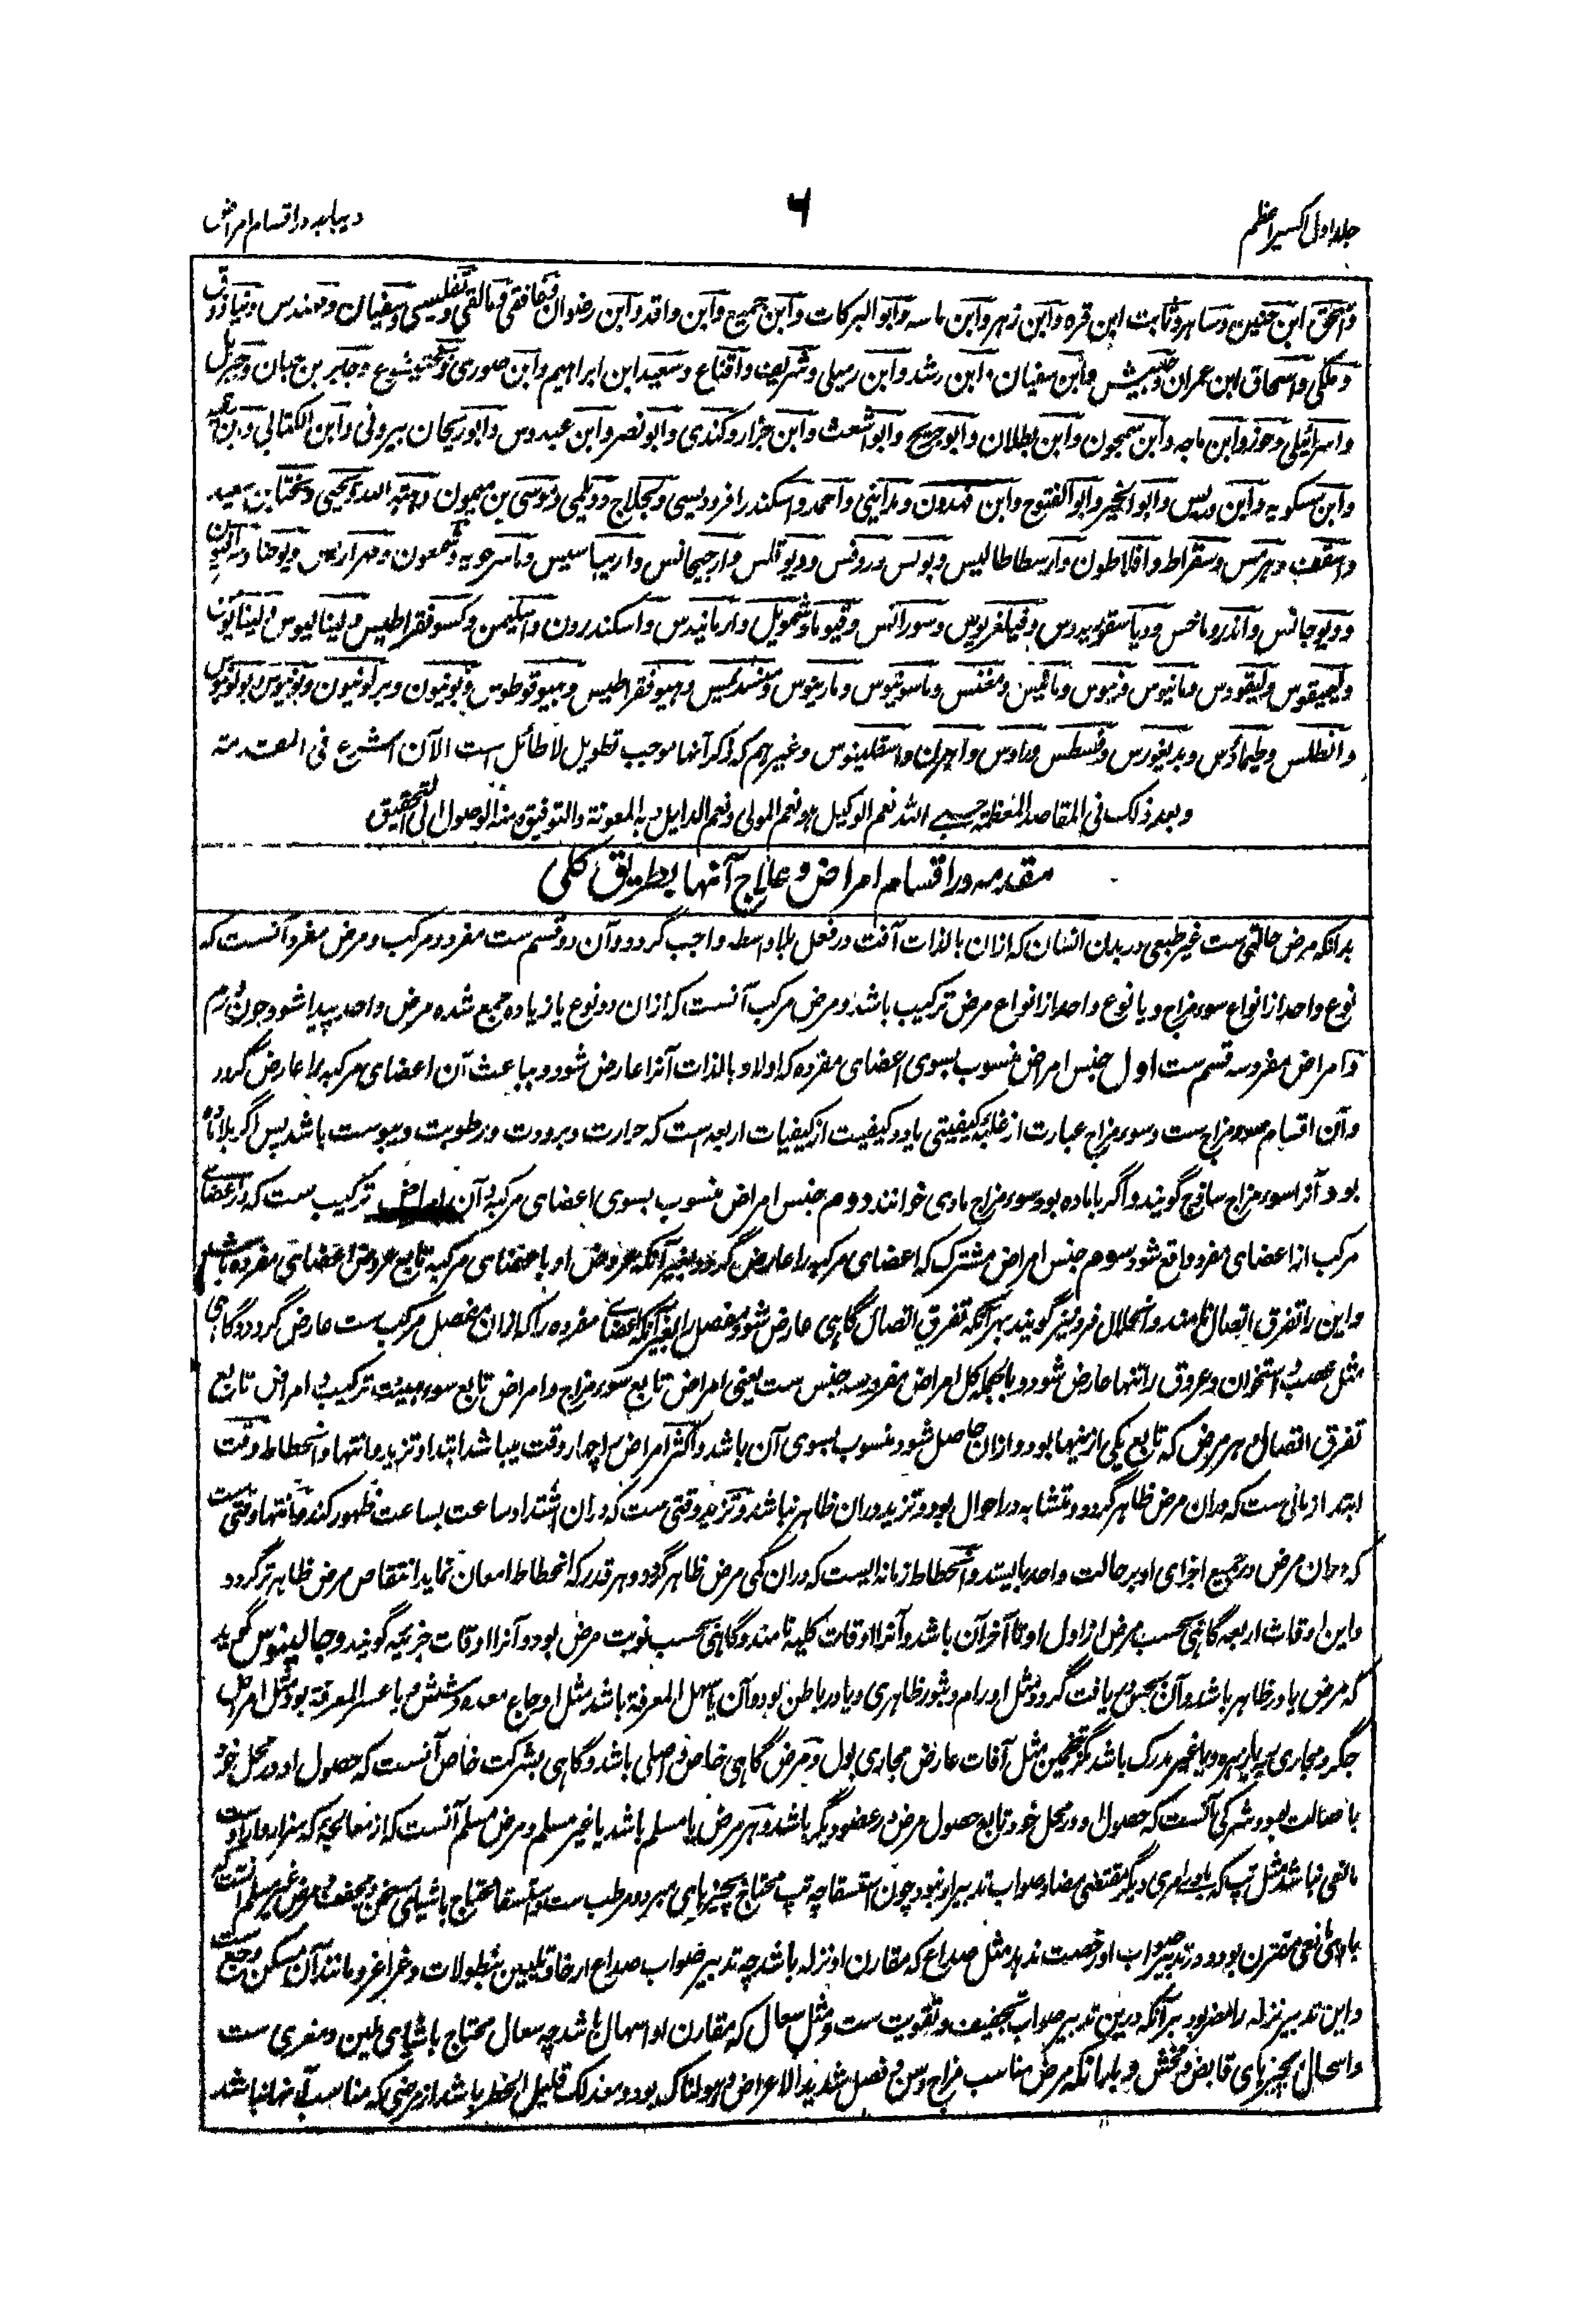 جلد اول اکسیر اعظم
۶
دیباچه در اقسام امراض
واسحق ابن حنین وساهر وثابت ابن قره وابن زهر وابن ماسه وابو البرکات وابن جمیع وابن واقد وابن رضوان وغافقی ومالقی وتفلیسی وسفیان ومهندس ونیاذوق
وملکی واسحاق ابن عمران وحبیش وابن سفیان وابن رشد وابن رمیلی وشریف واقناع وسعید ابن ابراهیم وابن صوری وبختیشوع وجابر بن حبان وجبریل
واسرائیلی وحوز وابن ماجه وابن سمجون وابن بطلان وابو جریج وابو اشعث وابن جزار وکندی وابو نصر وابن عبدوس وابو ریحان بیرونی وابن الکتالی وابن
وابن مسکویه وابن ادریس وابو الخیر وابو الفتوح وابن فهدون ومدائنی واحمد واسکندر افرودیسی وکجلاج ودیلمی وموسی بن میمون وهبة الله ویحیی وبختیار بن سعید
واسقف وهرمس وسقراط وافلاطون وارسطاطالیس وبولس وروفس ودیوقلس وارجیجانس واریباسیس وماسرجویه وشمعون ومهراریس ویوحنا
ودیوجانس واندروماخس ودیاسقوریدوس وفیلغریوس وسورانس وقیوما وشمویل وارمانیدس واسکندرون واسکیمن وکسوفقراطیس ولینالیوس
وانطلس وطیماؤس وبریغورس وفسطس وراوس واهرن واسقلینوس وغیرهم که ذکر آنها موجب تطویل لاطائل است الآن اشرع فی المقدمة
وبعد ذلک فی المقاصد المعظمة حسبی الله نعم الوکیل هو نعم المولی ونعم الدلیل به المعونة والتوفیق ومنه الوصول الی التحقیق
مقدمه در اقسام امراض و علاج آنها بطریق کلی
بدانکه مرض حالتی ست غیر طبعی در بدن انسان که ازان بالذات آفت در فعل بلا واسطه واجب گردد وآن دو قسم ست مفرد ومرکب ومرض مفرد آنست که
نوع واحد از انواع سوء مزاج ویا نوع واحد از انواع مرض ترکیب باشد ومرض مرکب آنست که ازان دو نوع یا زیاده جمع شده مرض واحد پیدا شود چون ورم
وامراض مفرد سه قسم ست اول جنس امراض منسوب بسوی اعضای مفرده که اولا وبالذات آنرا عارض شود وبباعث آن اعضای مرکبه را عارض گردد
وآن اقسام سوء مزاج ست وسوء مزاج عبارت از غلبه کیفیتی یا دو کیفیت از کیفیات اربعه است که حرارت وبرودت ورطوبت ویبوست باشد پس اگر بلا ماده
بود آنرا سوء مزاج ساذج گویند واگر با ماده بود سوء مزاج مادی خوانند دوم جنس امراض منسوب بسوی اعضای مرکبه وآن امراض ترکیب ست که در اعضای
مرکب از اعضای مفرد واقع شود سوم جنس امراض مشترک که اعضای مرکبه را عارض گردد بغیر آنکه عروض او باعضای مرکبه تابع عروض اعضای مفرده باشد
واین را تفرق اتصال نامند وانحلال فرد نیز گویند بهر آنکه تفرق اتصال گاهی عارض شود مفصل را بغیر آنکه اعضای مفرده را که ازان مفصل مرکب ست عارض گردد وگاهی
مثل عصب واستخوان وعروق را تنها عارض شود وبالجمله کل امراض مفرد سه جنس ست یعنی امراض تابع سوء مزاج وامراض تابع سوء هیئت ترکیب وامراض تابع
تفرق اتصال وهر مرض که تابع یکی ازینها بود وازان حاصل شود منسوب بسوی آن باشد واکثر امراض را چهار وقت میباشد ابتدا وتزید وانتها وانحطاط وقت
ابتدا زمانی ست که دران مرض ظاهر گردد ومتشابه در احوال بود وتزید دران ظاهر نباشد وتزید وقتی ست که دران اشتداد ساعت بساعت ظهور کند وانتها وقتی ست
که دران مرض در جمیع اجزای او بر حالت واحد بایستد وانحطاط زمانه ایست که دران کمی مرض ظاهر گردد وهر قدر که انحطاط امعان نماید انتقاص مرض ظاهر تر گردد
واین اوقات اربعه گاهی بحسب مرض از اول او تا آخر آن باشد وآنرا اوقات کلیه نامند وگاهی بحسب نوبت مرض بود وآنرا اوقات جزئیه گویند وجالینوس گوید
که مرض یا در ظاهر باشد وآن بحس یافت گردد مثل اورام وبثور ظاهری ویا در باطن بود وآن یا سهل المعرفة باشد مثل اوجاع معده وشش ویا عسر المعرفة بود مثل امراض
جگر ومجاری ویا غیر مدرک باشد مگر بتخمین مثل آفات عارض مجاری بول ومرض گاهی خاص واصلی باشد وگاهی بشرکت خاص آنست که حصول او در محل خود
باصالت بود وشرکی آنست که حصول او در محل خود تابع حصول مرض در عضو دیگر باشد وهر مرض یا مسلم باشد یا غیر مسلم ومرض مسلم آنست که از معالجه که سزاوار اوست
مانعی نباشد مثل تپ که با او امری دیگر مقتضی مضاد صواب تدبیر او نبود چون استسقا چه تپ محتاج بچیزهای مبرد ومرطب ست واستسقا محتاج باشیای مسخن ومجفف ومرض غیر مسلم آنست که
با او مانعی مقترن بود ودر تدبیر صواب او رخصت ندهد مثل صداع که مقارن او نزله باشد چه تدبیر صواب صداع ارخا وتلیین بنطولات وغراغر ومانند آن مسکن وجع ست
واین تدبیر نزله را مضر بود بهر آنکه درین تدبیر صواب تجفیف وتقویت ست ومثل سعال که مقارن او اسهال باشد چه سعال محتاج باشیای ملین ومغری ست
واسهال بچیزهای قابض ومخشن وبدانکه مرض مناسب مزاج وسن وفصل شدید الاعراض وهولناک بود ومعذلک قلیل الخطر باشد از مرضی که مناسب آنها نباشد